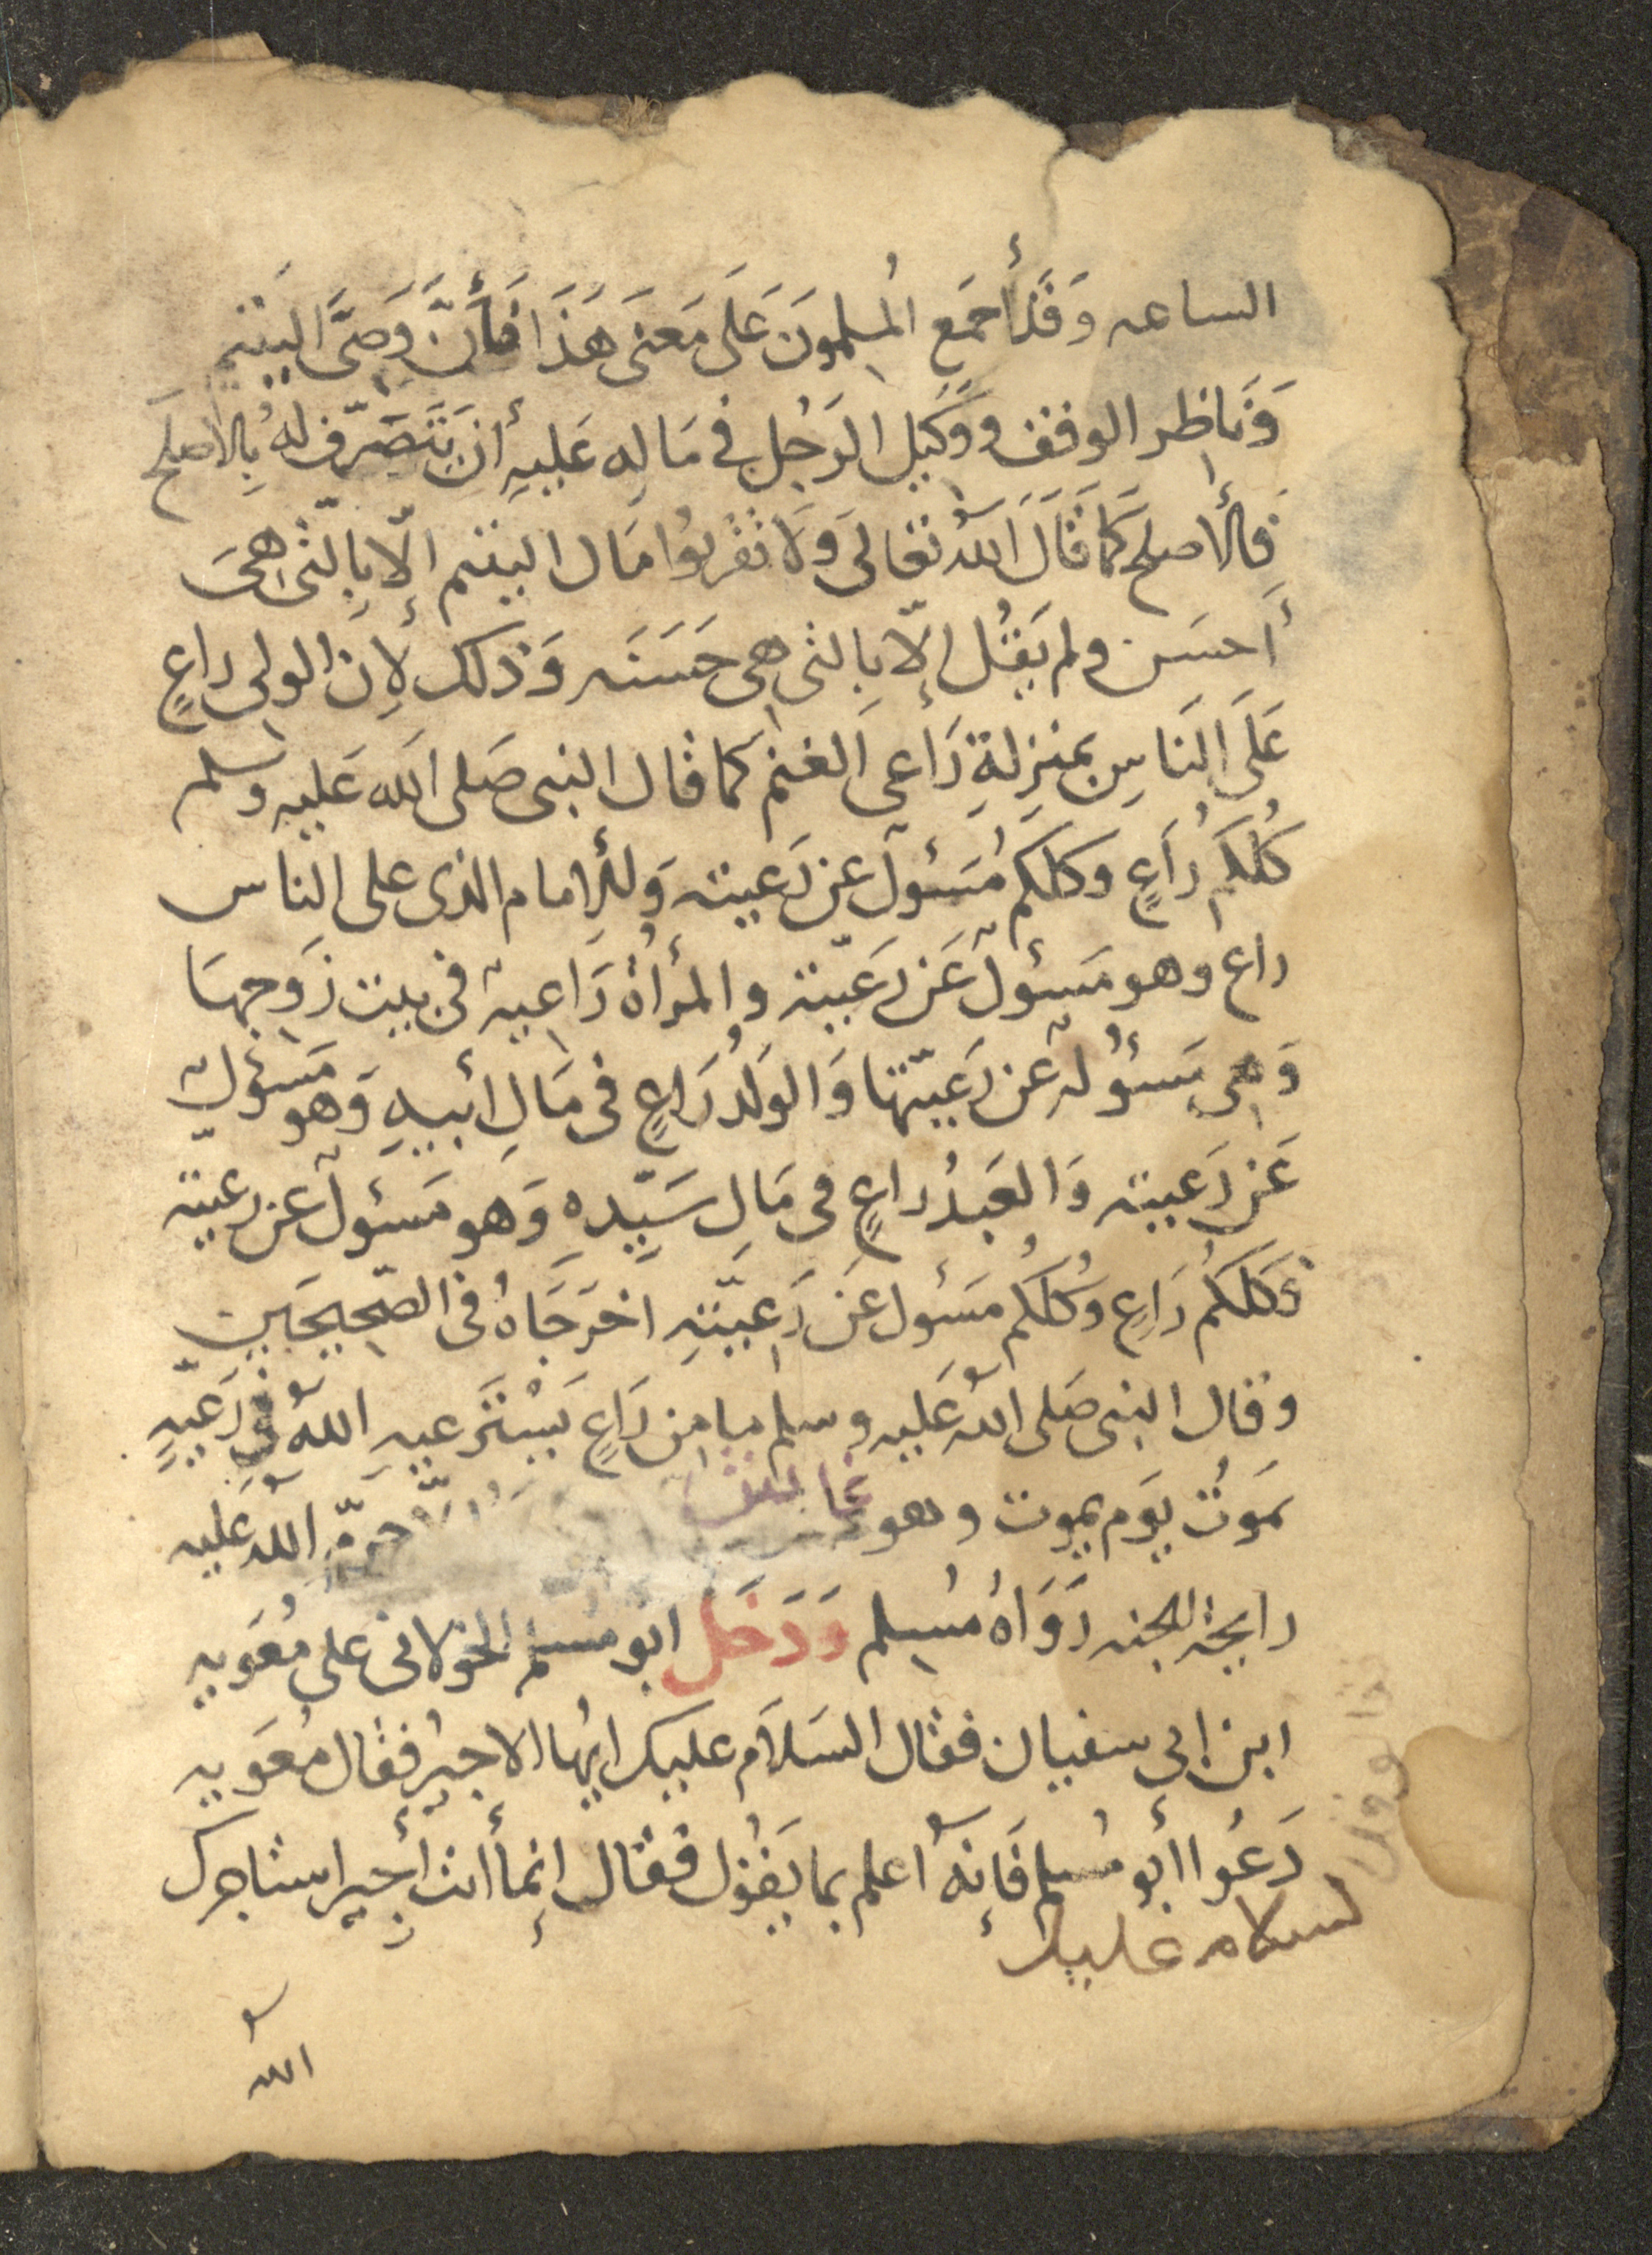 الساعه وَقَدأَجمَع المُسِلمونَ عَلَى مَعنى هَذَا فَأَنَّ وَصِىَّ اليَتيَم
وَنَاظِر الوقف ووَكَيِل الرَجُل فى مَالِه عَليهِ أَن يَتَصَرَّف لهُ بِالاصلح
فالأَصلح كَمَا قَالَ اللهُ تعَالىَ وَلَا تقْربوُا مَال اليتيم إِلّا بِالّتى هِىَ
أَحسَن ولم يَقُل إِلّا بِالتى هِى حَسَنَه وَذلك لأِن الولى راعٍ
عَلَى النَاسِ بمنزِلةِ رَاعىِ الغنم كما قال النبى صَلى الله عَليه وسلم
كُلكُم رَاعٍ وكلكم مَسَئولٌ عن رَعيته وَللأمام الذى على الناس
راع وهو مَسئولٌ عَن رَعَيّته والمرأةُ رَاعِيهٌ فى بيت زَوجِهَا
وَهِى مَسئُولهٌ عن رَعَيّتها وَالوَلدُ رَاعٍ فى مَالِ أَبيهِ وَهو مَسئولٌ
عَن رَعيته وَالعَبدُ راعٍ فى مَالِ سَيّدِه وَهو مَسئولٌ عن رعيّته
فكَلكُم رَاعٍ وَكُلكُم مَسئول عَن رَعِيّتهِ اخرَجَاهُ فى الصّحِيحَين
وقال النبى صَلى اللهُ عَليه وسلم مامِن رَاعٍ يَسْتَرعيهِ اللهُ رَعَيّهٍ
يموَتُ يَوَم يموت وهو غاش حرّم اللهُ عَليه
رايحةُ الجنه رَوَاهُ مُسِلم وَدَخَل ابو مسلم الخولانى على مُعَويه
ابن ابى سفيان فقال السَلاَم عليك ايُها الاجيُر فقال مُعَويه
دَعُوا أبو مُسلم فَإِنهُ أعلم بما يَقوُل فقال إِنما أنت أَجيِرٌ استاجرك
لسلام عليك
الله